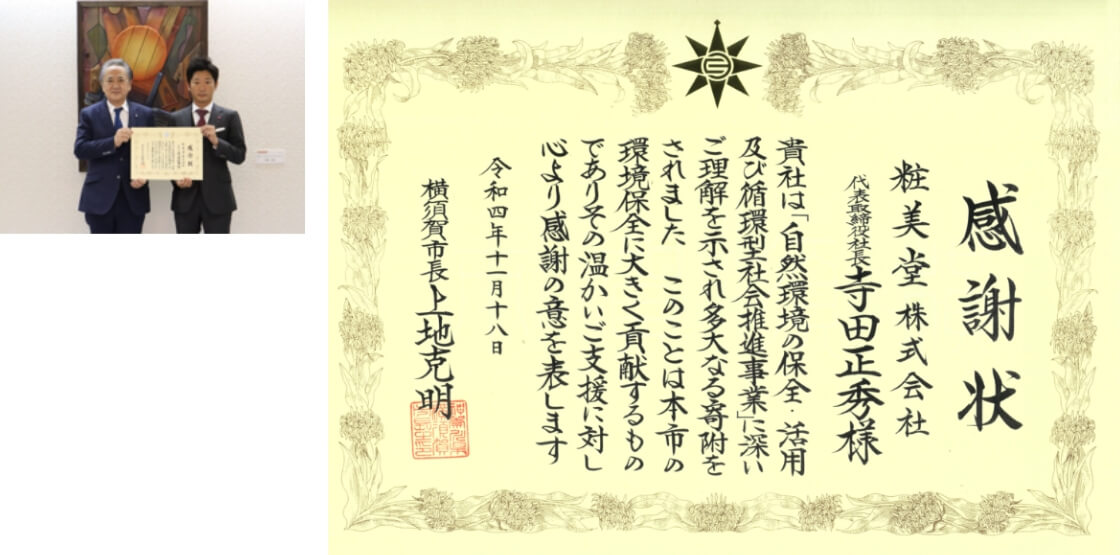 感謝状
粧美堂株式会社
代表取締役社長寺田正秀様
貴社は「自然環境の保全・活用
及び循環型社会推進事業」に深い
ご理解を示され多大なる寄附を
されました このことは本市の
環境保全に大きく貢献するもの
でありその温かいご支援に対し
心より感謝の意を表します
令和四年十一月十八日
横須賀市長上地克明